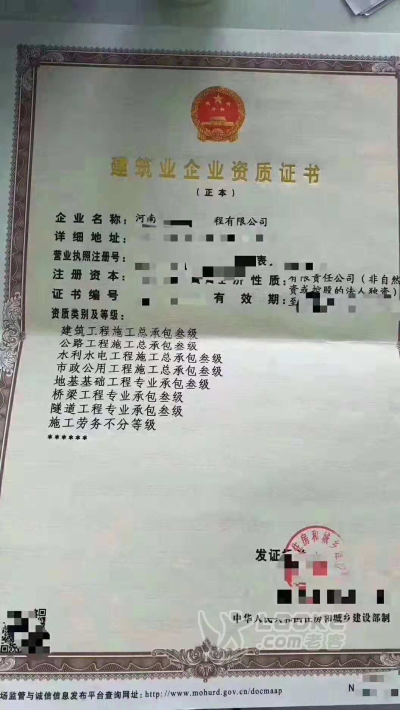 建筑业企业资质证书
(正本)
企业名称:河南 程有限公司
详细地址:
营业执照注册号:
注册资本: 经济性质:有限责任公司(非自然
资或控股的法人独资)
证书编号 有效期:至
资质类别及等级:
建筑工程施工总承包叁级
公路工程施工总承包叁级
水利水电工程施工总承包叁级
市政公用工程施工总承包叁级
地基基础工程专业承包叁级
桥梁工程专业承包叁级
隧道工程专业承包叁级
施工劳务不分等级
******
住房和城乡
发证
中华人民共和国住房和城乡建设部制
老客
场监管与诚信信息发布平台查询网址:http://www.mohurd.gov.cn/docmaap
N